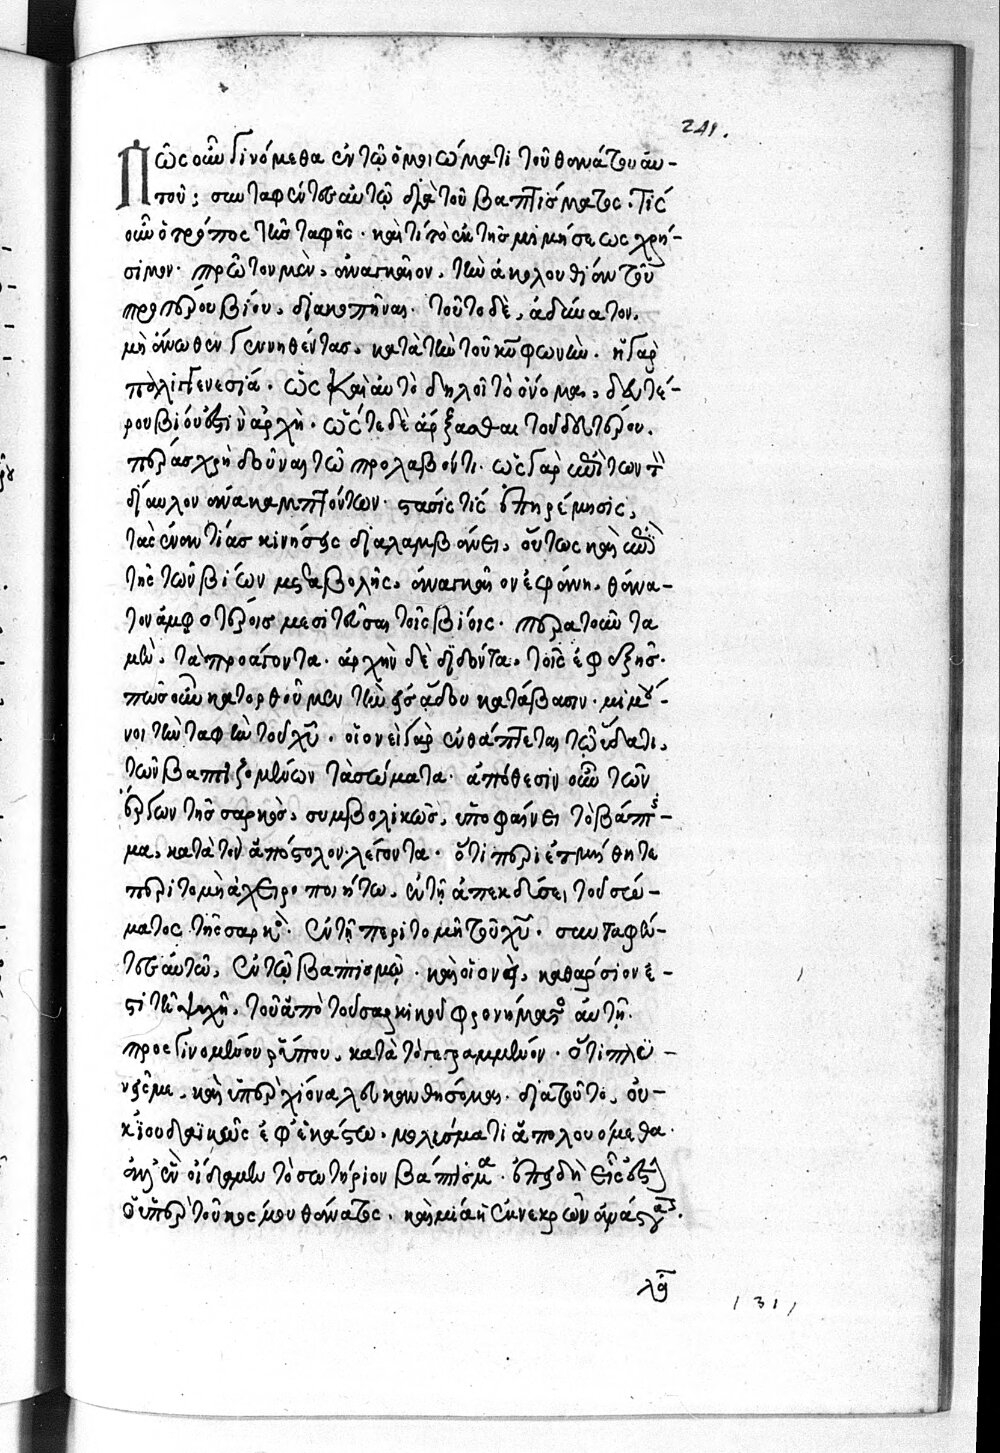 241.
Πῶς οὖν γινόμεθα ἐν τῷ ὁμοιώματι τοῦ θανάτου αὐ-
τοῦ; συνταφέντες αὐτῷ διὰ τοῦ βαπτίσματος. τίς
οὖν ὁ τρόπος τῆς ταφῆς. καὶ τί τὸ ἐκ τῆς μιμήσεως χρή-
σιμον. πρῶτον μὲν, ἀναγκαῖον, τὴν ἀκολουθίαν τοῦ
προτέρου βίου, διακοπῆναι. τοῦτο δὲ, ἀδύνατον,
μὴ ἄνωθεν γεννηθέντας, κατὰ τὴν τοῦ κυ φωνήν. ἡ γὰρ
παλιγγενεσία, ὡς καὶ αὐτὸ δηλοῖ τὸ ὄνομα, δευτέ-
ρου βίου ἐστὶν ἀρχὴ. ὥστε δὲ ἄρξασθαι τοῦ δευτέρου,
πέρας χρὴ δοῦναι τῷ προλαβόντι. ὡς γὰρ ἐπὶ τῶν τὸν
δίαυλον ἀνακαμπτόντων. στάσίς τίς ἐπηρέμησις,
τὰς ἐναντίας κινήσεις διαλαμβάνει, οὕτως καὶ ἐπὶ
τῆς τῶν βίων μεταβολῆς, ἀναγκαῖον ἐφάνη, θάνα-
τον ἀμφοτέροις μεσιτεῦσαι τοῖς βίοις. περατοῦντα
μὲν, τὰ προάγοντα. ἀρχὴν δὲ διδόντα, τοῖς ἐφεξῆς.
πῶς οὖν κατορθοῦμεν τὴν εἰς ᾅδου κατάβασιν. μιμού-
νοι τὴν ταφὴν τοῦ χυ. οἱονεὶ γὰρ ἐνθάπτεται τῷ ὕδατι,
τῶν βαπτιζομένων τὰ σώματα. ἀπόθεσιν οὖν τῶν
ἔργων τῆς σαρκὸς, συμβολικῶς, ὑποφαίνει τὸ βάπτισ-
μα, κατὰ τὸν ἀπόστολον λέγοντα. ὅτι περιετμήθητε
περιτομὴ ἀχειροποιήτω, ἐν τῇ ἀπεκδύσει τοῦ σώ-
ματος τῆς σαρκὸς. ἐν τῇ περιτομῇ τοῦ χυ. συνταφέν-
τες αὐτῷ, ἐν τῷ βαπτισμῷ. καὶ οἱονεὶ, καθαρσίον ἐ-
στὶ τῆς ψυχῆς, τοῦ ἀπὸ τοῦ σαρκικοῦ φρονήματος αὐτῇ.
προσγινομένου ῥύπου, κατὰ τὸ γεγραμμένον. ὅτι πλυ-
νεῖς με, καὶ ὑπὲρ χιόνα λευκανθήσομαι. διὰ τοῦτο, οὐ-
κ ἰουδαϊκῶς ἐφ' ἑκάστω. μολύσματι ἀπολουόμεθα.
ἀλλ' ἓν οἴδαμεν τὸ σωτήριον βάπτισμα. ἐπειδὴ εἷς ἐστὶ
ὁ ὑπὲρ τοῦ κόσμου θάνατος, καὶ μία ἡ ἐκ νεκρῶν ἀνάστασις.
1311